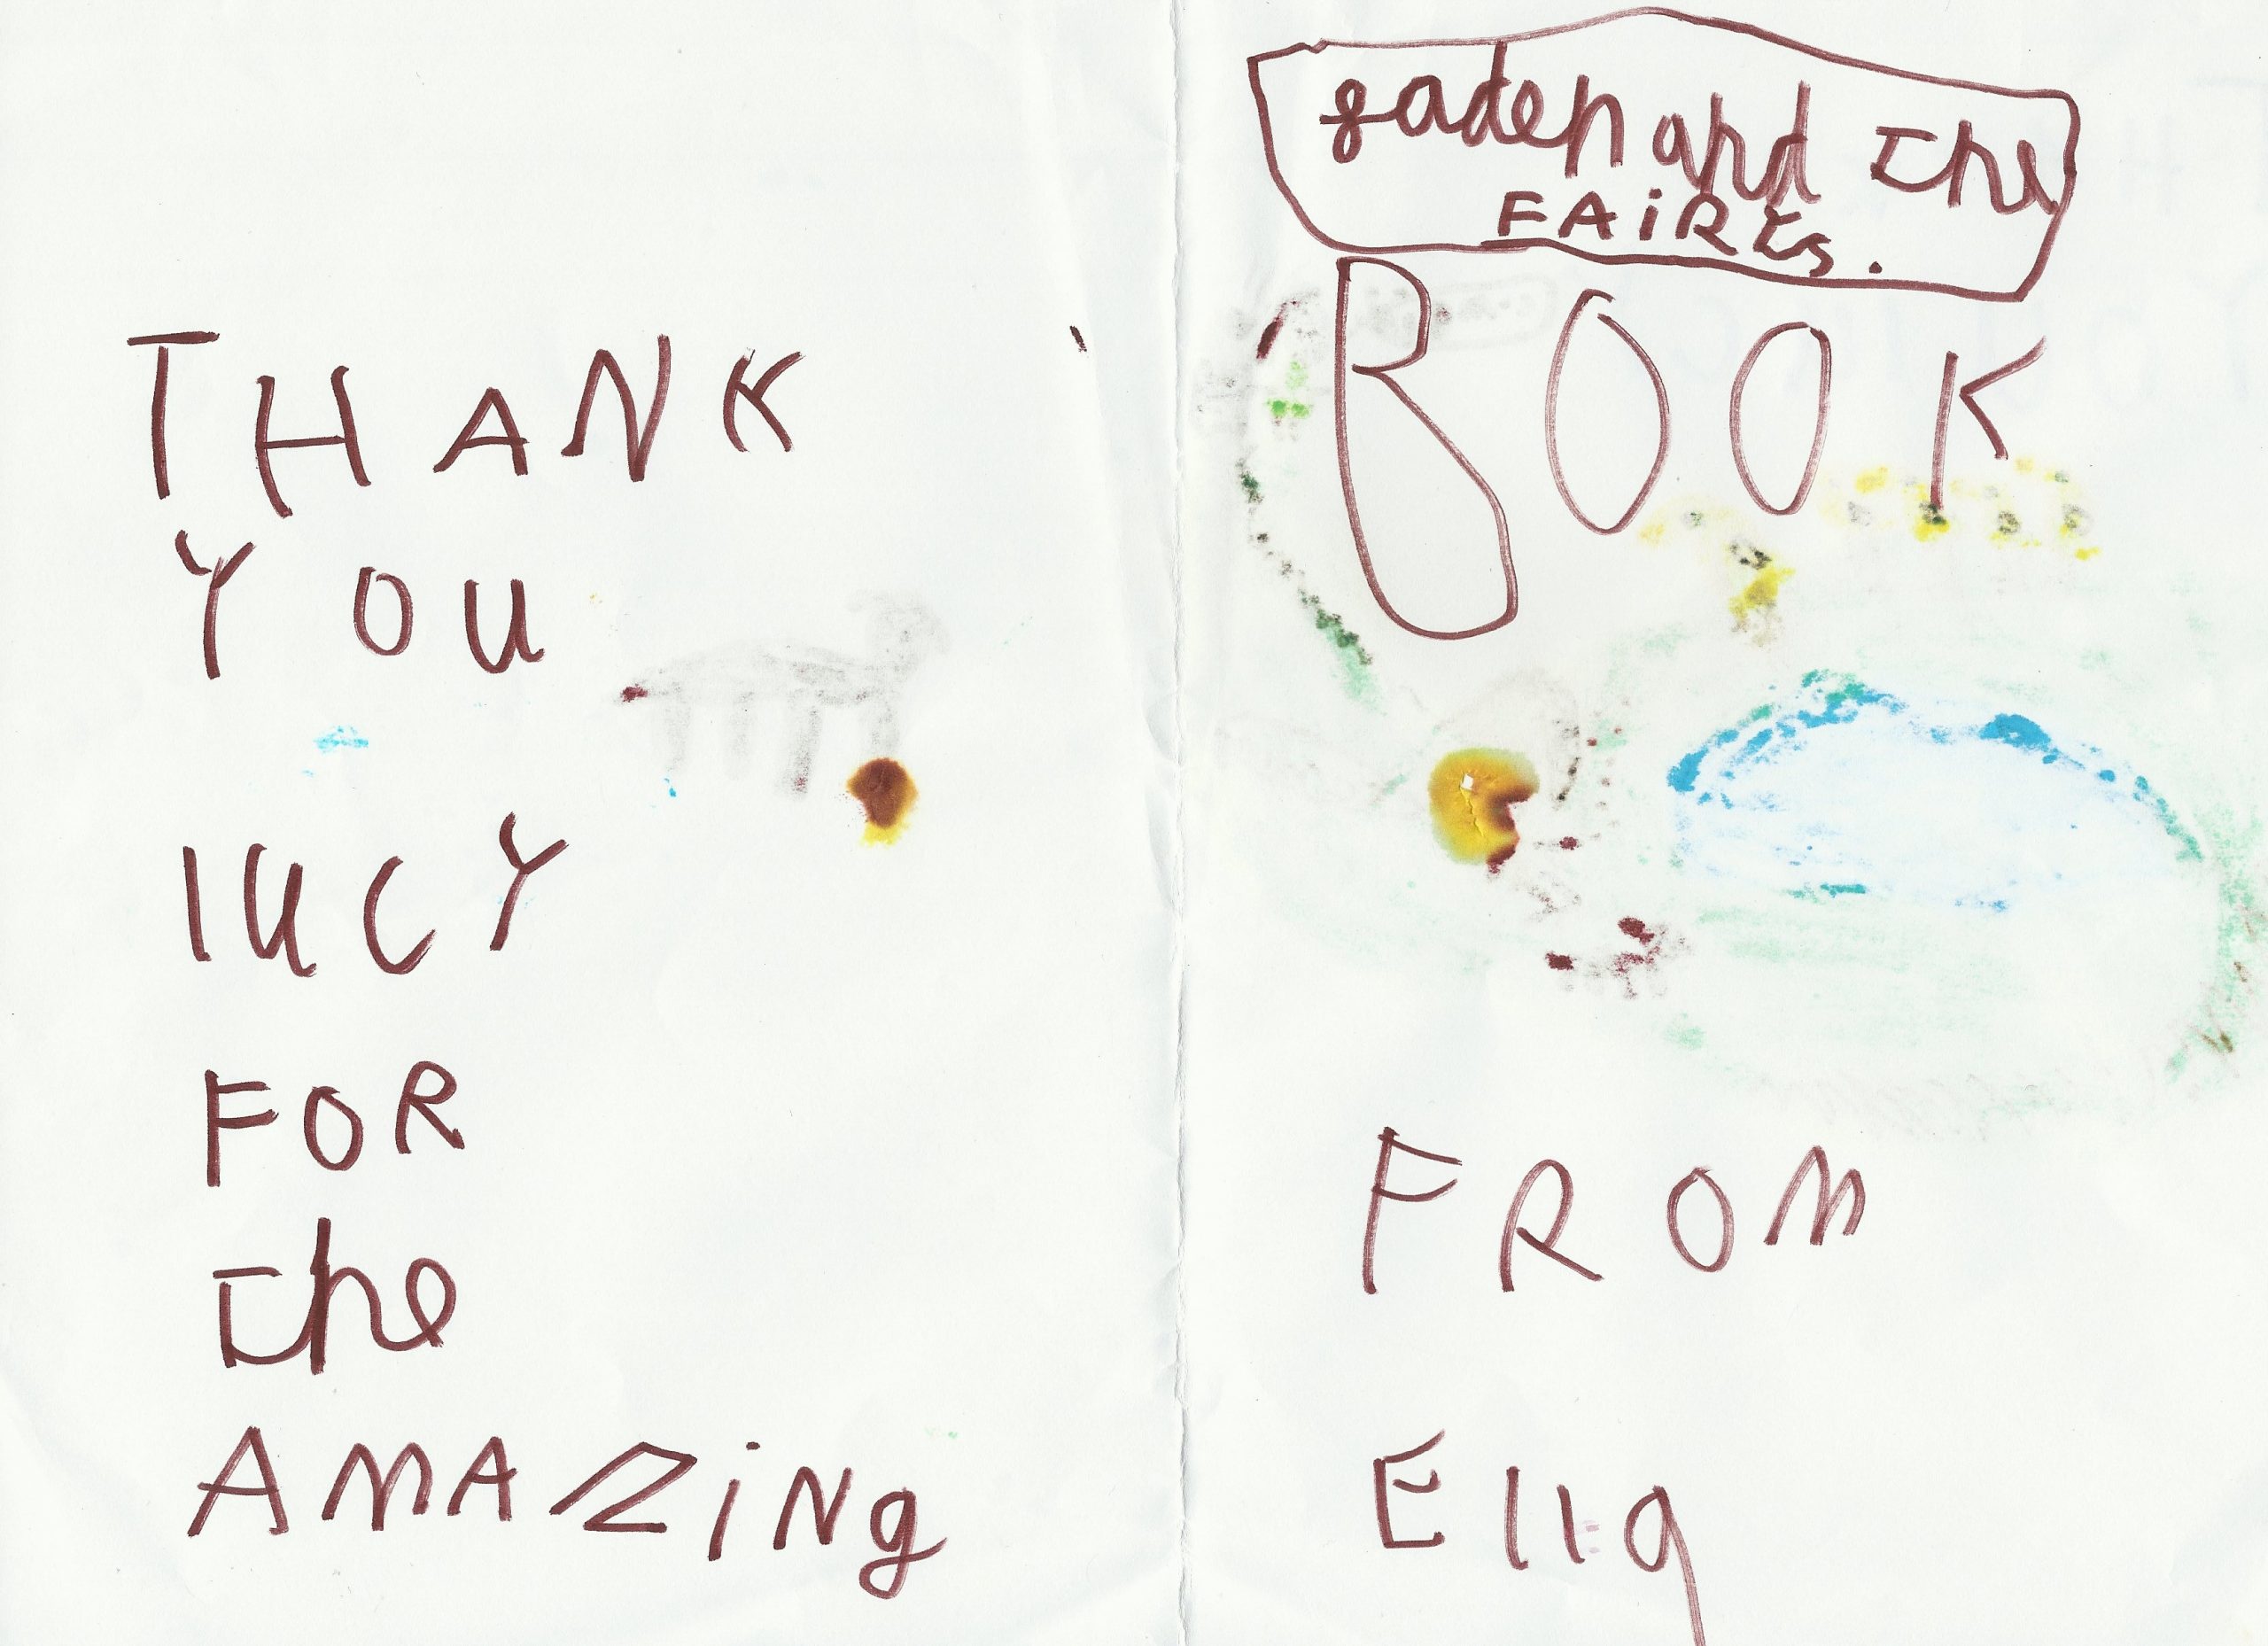 THANK
YOU
lUCY
FOR
the
AMAZiNg
gaden and the
FAiRES.
BOOK
FROM
Ella